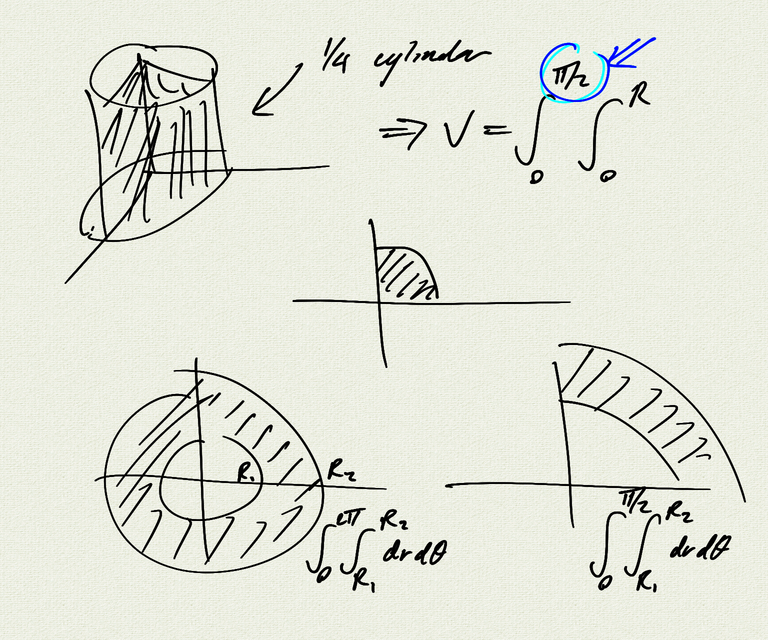 1/4 cylinder
⇒ V = ∫₀^{π/2} ∫₀^R
R₁ R₂
∫₀^{2π} ∫_{R₁}^{R₂} dr dθ
∫₀^{π/2} ∫_{R₁}^{R₂} dr dθ